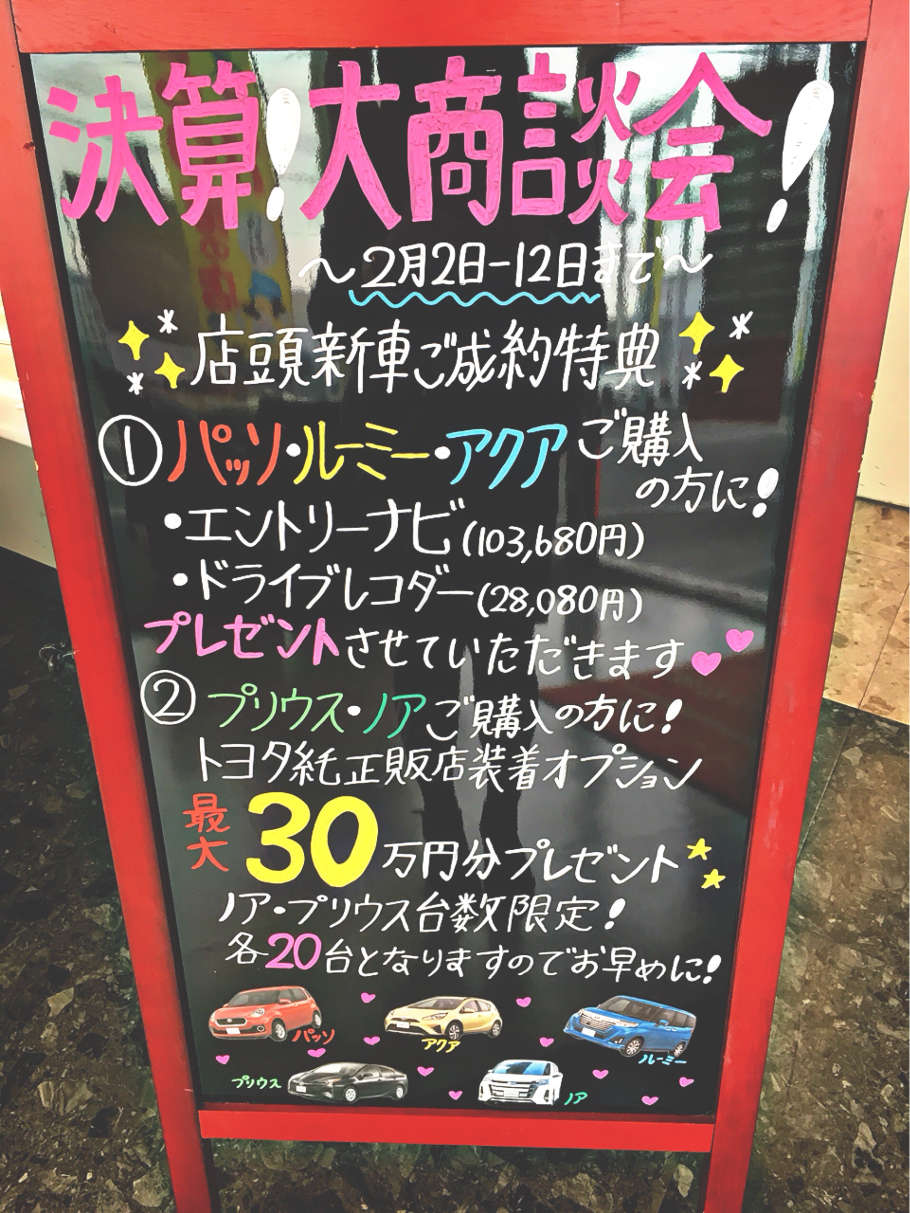 決算!大商談会!
〜2月2日-12日まで〜
店頭新車ご成約特典
①パッソ・ルーミー・アクアご購入
の方に!
・エントリーナビ(103,680円)
・ドライブレコダー(28,080円)
プレゼントさせていただきます
②プリウス・ノアご購入の方に!
トヨタ純正販店装着オプション
最大30万円分プレゼント
ノア・プリウス台数限定!
各20台となりますのでお早めに!
パッソ
アクア
ルーミー
プリウス
ノア